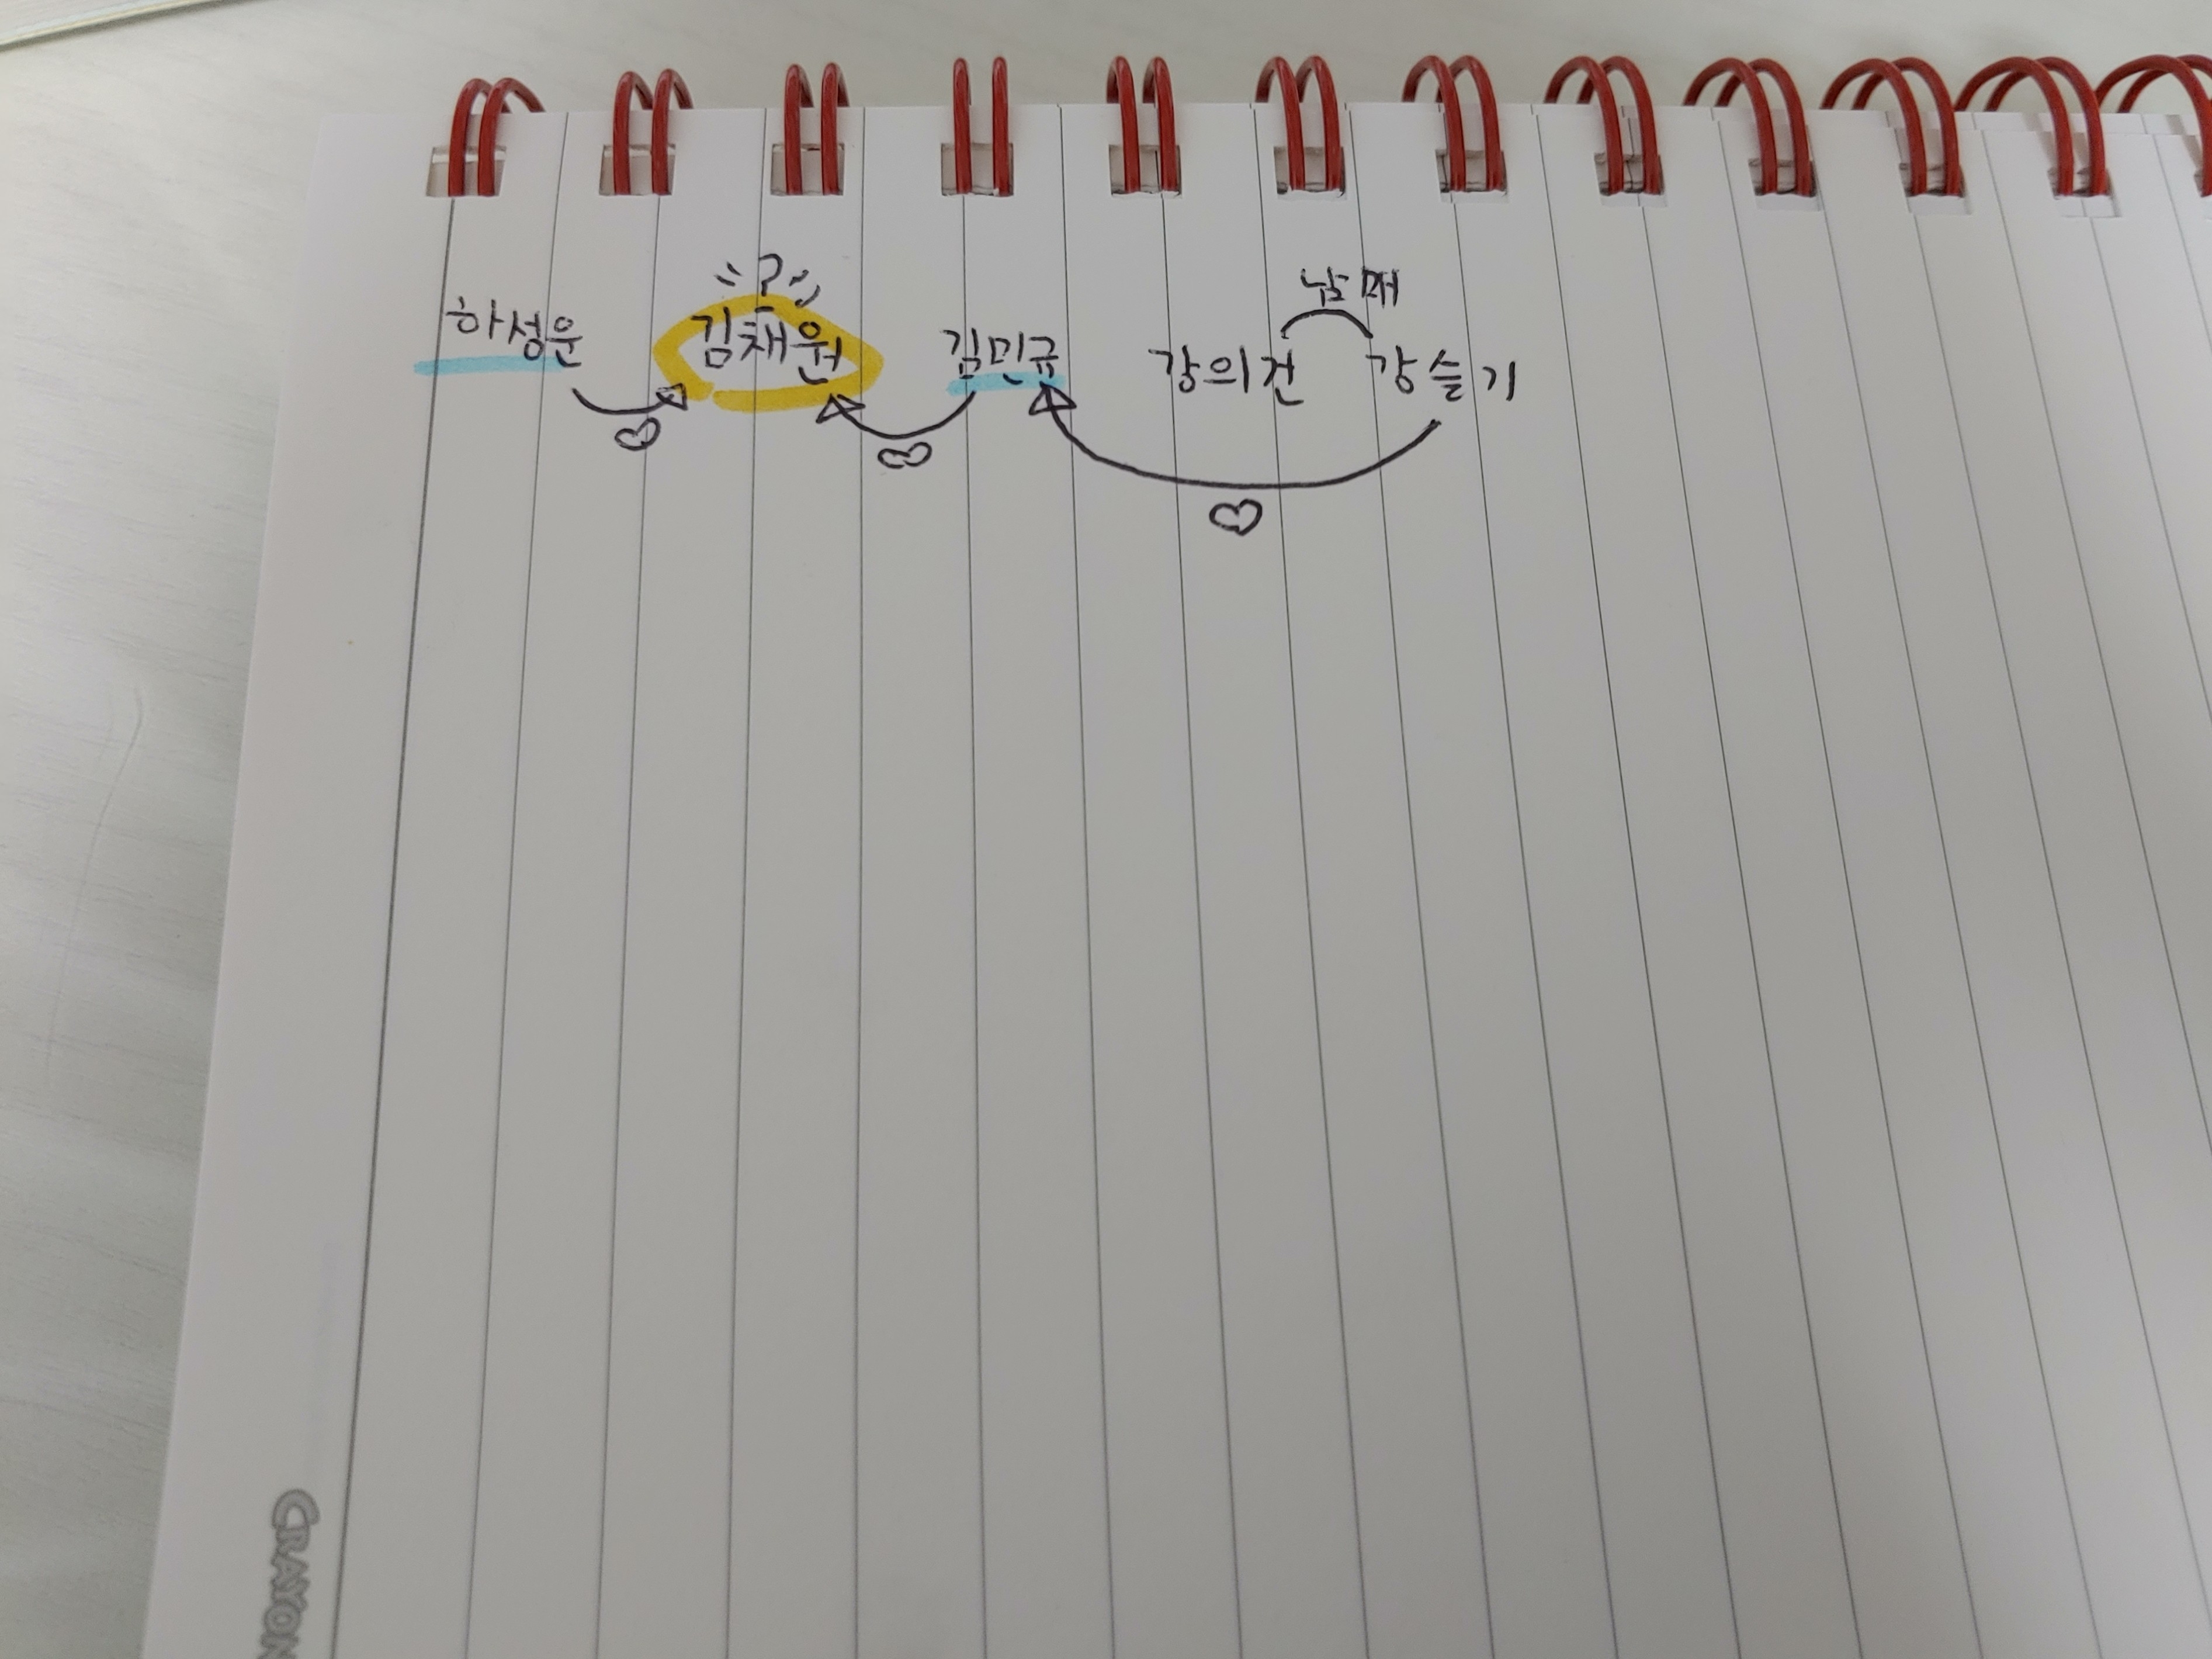 ?
남매
하성운 김채원 김민규 강의건 강슬기
CRAYON